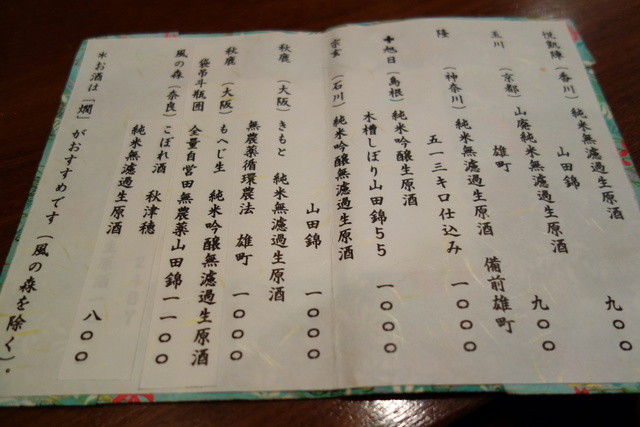 悦凱陣 (香川) 純米無濾過生原酒
山田錦 九〇〇
玉川 (京都) 山廃純米無濾過生原酒
雄町 九〇〇
隆 (神奈川) 純米吟醸無濾過生原酒 備前雄町
五一三キロ仕込み 一〇〇〇
十旭日 (島根) 純米吟醸生原酒
木槽しぼり山田錦55 一〇〇〇
宗玄 (石川) 純米吟醸無濾過生原酒
山田錦 一〇〇〇
秋鹿 (大阪) きもと 純米無濾過生原酒
無農薬循環農法 雄町 一〇〇〇
秋鹿 (大阪) もへじ生 純米吟醸無濾過生原酒
袋吊斗瓶囲 全量自営田無農薬山田錦 一一〇〇
風の森 (奈良) こぼれ酒 秋津穂
純米無濾過生原酒 八〇〇
*お酒は「燗」がおすすめです(風の森を除く)。